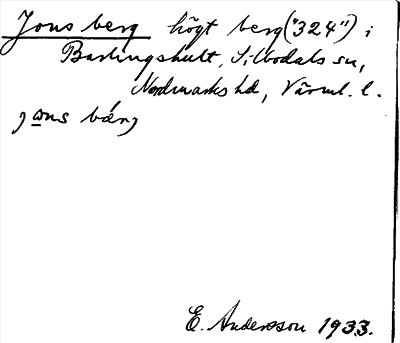 Jons berg högt berg ("324") i
Barlingshult, Silbodals sn,
Nordmarks hd, Värml. l.
E. Andersson 1933.